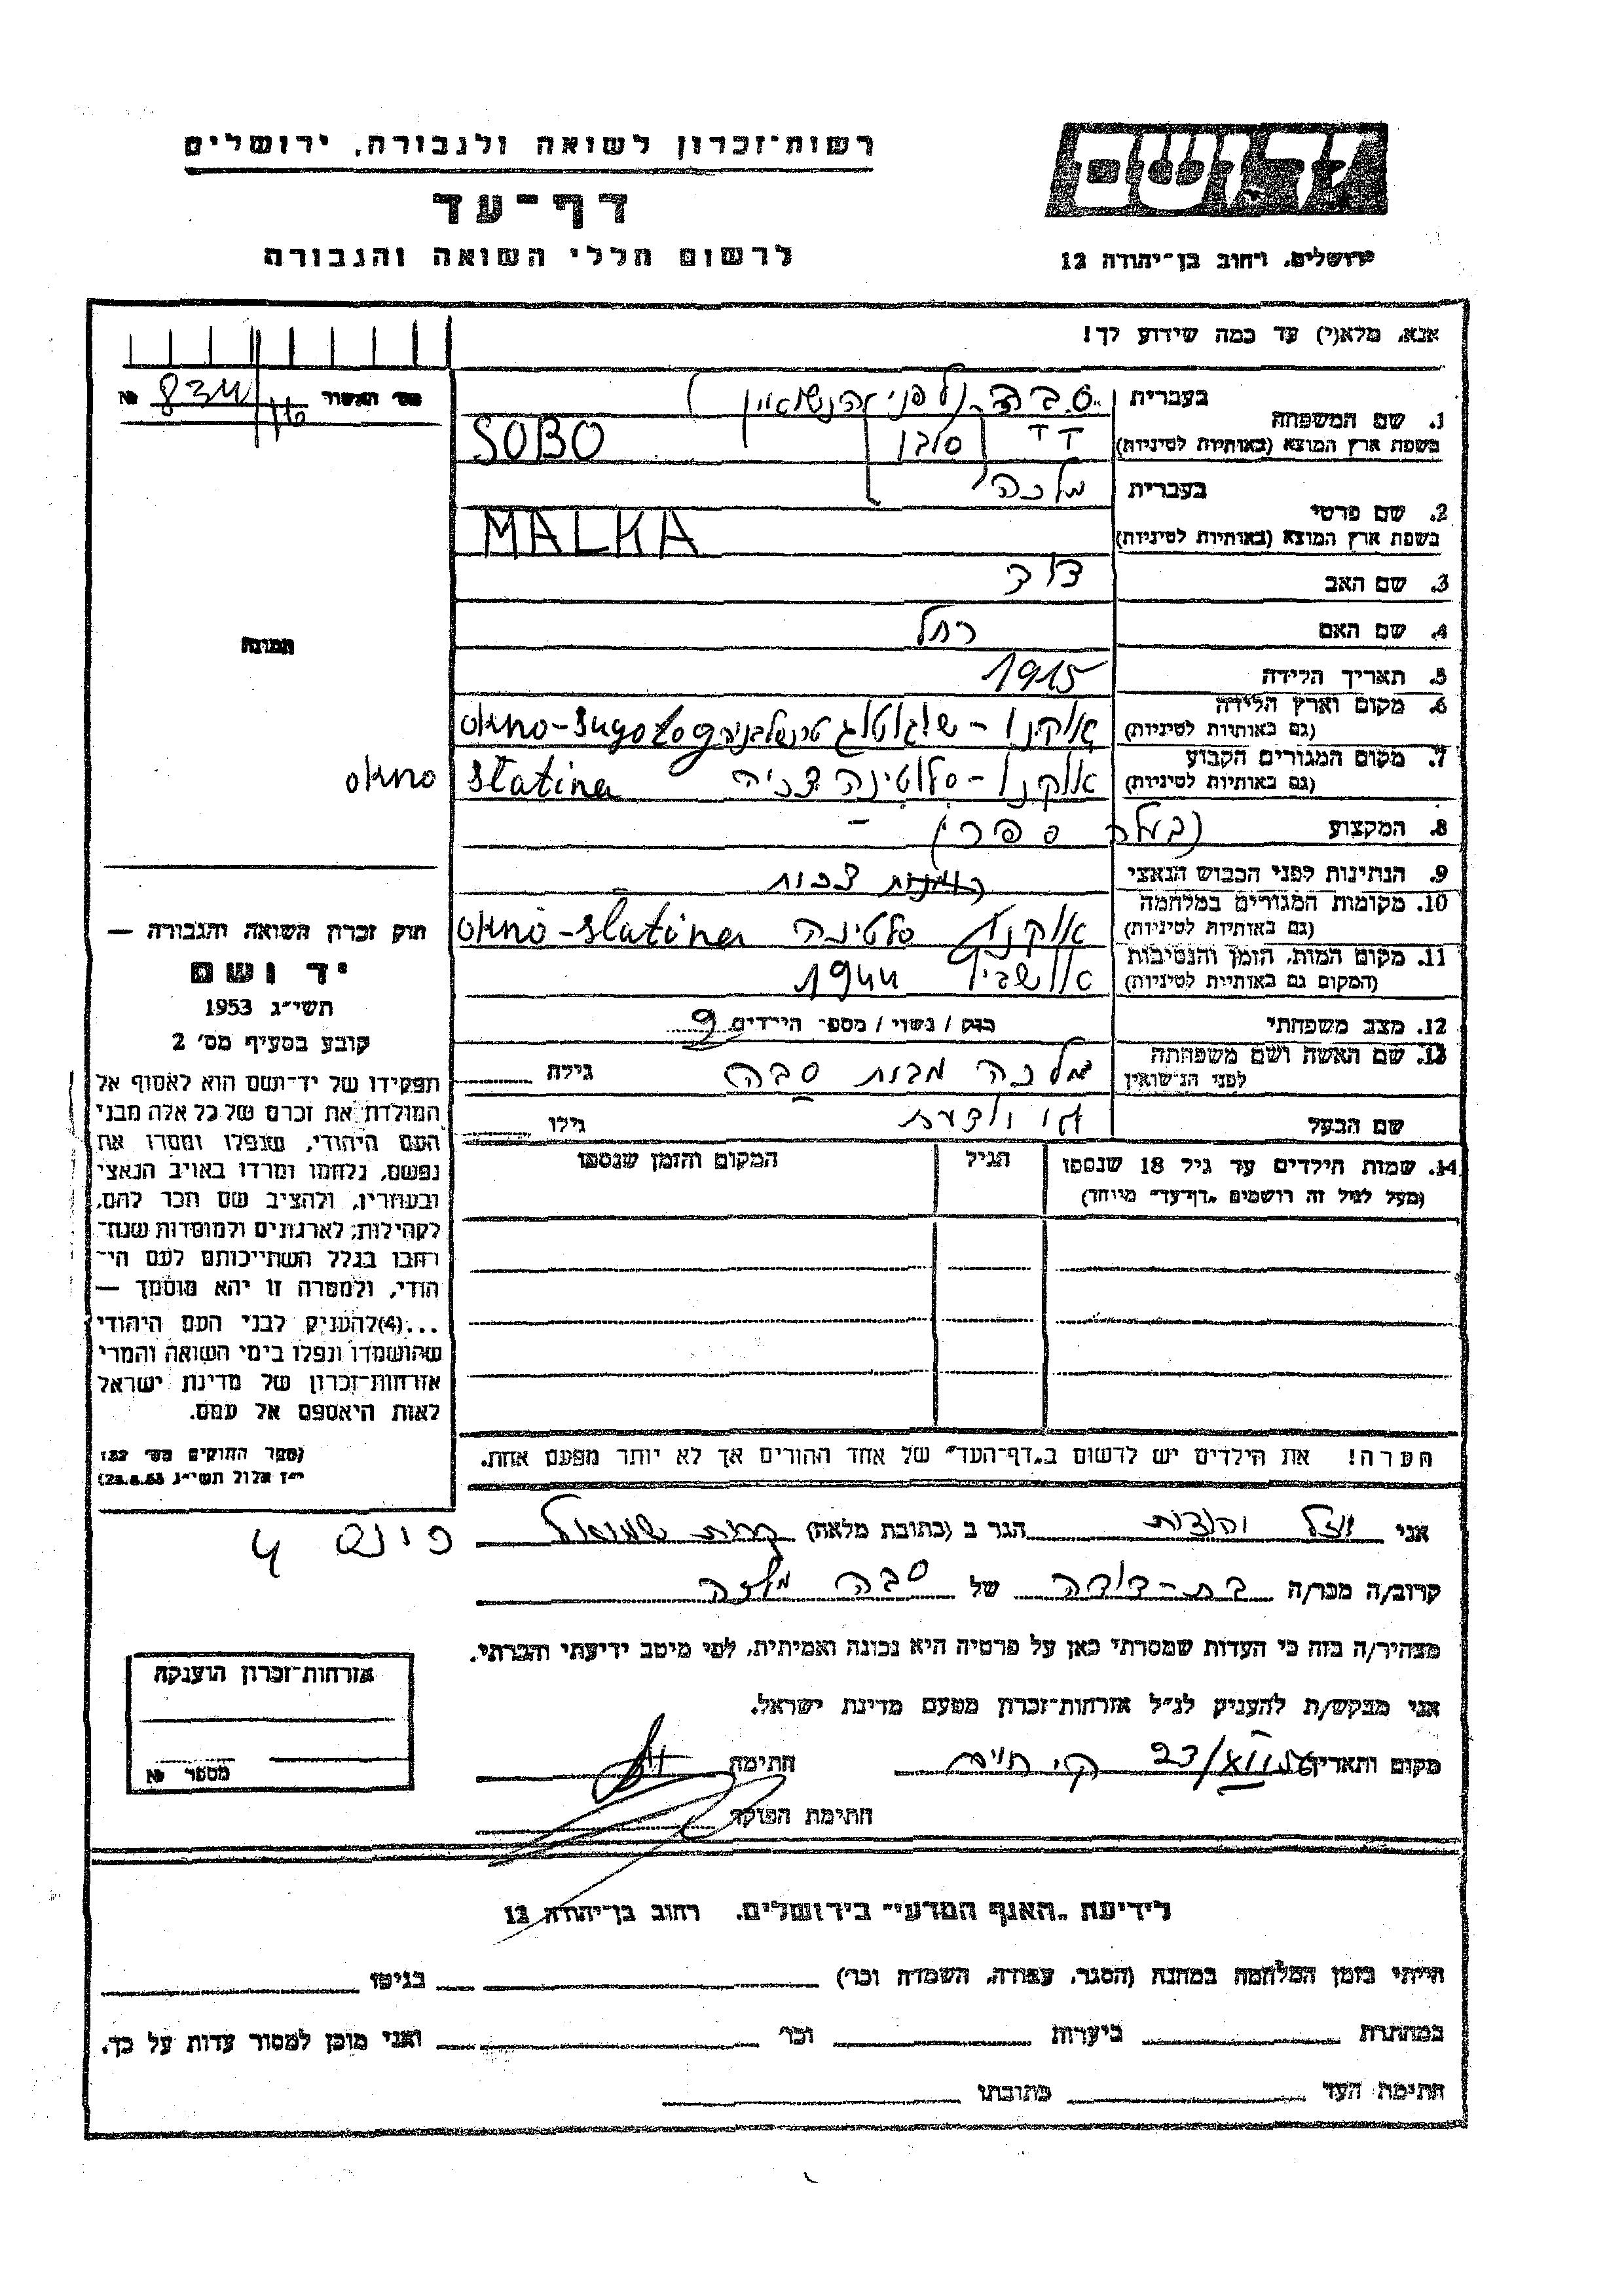 רשות־זכרון לשואה ולגבורה, ירושלים
דף־עד
לרשום חללי השואה והגבורה
יד ושם
ירושלים, רחוב בן־יהודה 12
אנא, מלא(י) עד כמה שידוע לך!
1. שם המשפחה
בעברית סבה (לפני הנשואין)
בשפת ארץ המוצא (באותיות לטיניות) סובו SOBO
2. שם פרטי
בעברית מלכה
בשפת ארץ המוצא (באותיות לטיניות) MALKA
3. שם האב דוד
4. שם האם רחל
5. תאריך הלידה 1915
6. מקום וארץ הלידה
(גם באותיות לטיניות) אוקנו - okno-Sugatag
7. מקום המגורים הקבוע
(גם באותיות לטיניות) אוקנו - סלטינה צכיה slatina okno
8. המקצוע (בעלה ספר)
9. הנתינות לפני הכבוש הנאצי צכית
10. מקומות המגורים במלחמה
(גם באותיות לטיניות) אוקנו סלטינה okno-slatina
11. מקום המות, הזמן והנסיבות
(המקום גם באותיות לטיניות) אושביץ 1944
12. מצב משפחתי רווק / נשוי / מספר הילדים
13. שם האשה ושם משפחתה
לפני הנישואין מלכה מבית סבה גילה
שם הבעל גילו
14. שמות הילדים עד גיל 18 שנספו
(מעל לגיל זה רושמים „דף־עד” מיוחד)
הגיל
המקום והזמן שנספו
הערה! את הילדים יש לרשום ב„דף־העד” של אחד ההורים אך לא יותר מפעם אחת.
מס' האשור
№ 834
תמונה
חוק זכרון השואה והגבורה —
יד ושם
תשי״ג 1953
קובע בסעיף מס׳ 2
תפקידו של יד־ושם הוא לאסוף אל
המולדת את זכרם של כל אלה מבני
העם היהודי, שנפלו ומסרו את
נפשם, נלחמו ומרדו באויב הנאצי
ובעוזריו, ולהציב שם וזכר להם,
לקהילות, לארגונים ולמוסדות שנח־
רבו בגלל השתייכותם לעם הי־
הודי, ולמטרה זו יהא מוסמך —
...(4)להעניק לבני העם היהודי
שהושמדו ונפלו בימי השואה והמרי
אזרחות־זכרון של מדינת ישראל
לאות היאספם אל עמם.
(ספר החוקים מס׳ 132
י״ז אלול תשי״ג 28.8.53)
אני יהודית הגר ב (כתובת מלאה) קרית שמואל 4
קרוב/ה מכר/ה בת-דודה של סבה מלכה
מצהיר/ה בזה כי העדות שמסרתי כאן על פרטיה היא נכונה ואמיתית, לפי מיטב ידיעתי והכרתי.
אני מבקש/ת להעניק לנ״ל אזרחות־זכרון מטעם מדינת ישראל.
מקום ותאריך 23/XII חתימה
חתימת הפוקד
אזרחות־זכרון הוענקה
מספר №
לידיעת „האגף המדעי” בירושלים, רחוב בן־יהודה 12
הייתי בזמן המלחמה במחנה (הסגר, עבודה, השמדה וכר׳) בגיטו
במחתרת ביערות וכר׳ ואני מוכן למסור עדות על כך.
חתימת העד כתובתו